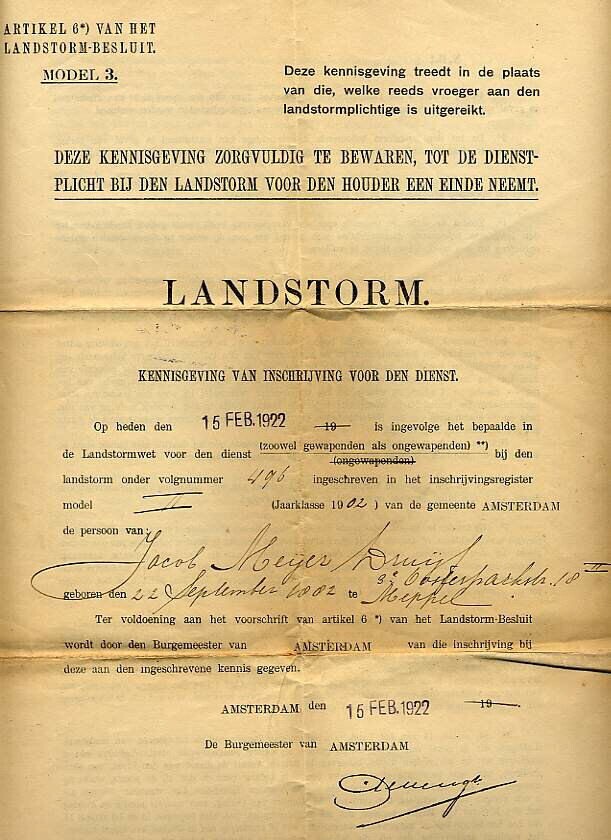 ARTIKEL 6*) VAN HET
LANDSTORM-BESLUIT.
MODEL 3.
Deze kennisgeving treedt in de plaats
van die, welke reeds vroeger aan den
landstormplichtige is uitgereikt.
DEZE KENNISGEVING ZORGVULDIG TE BEWAREN, TOT DE DIENST-
PLICHT BIJ DEN LANDSTORM VOOR DEN HOUDER EEN EINDE NEEMT.
LANDSTORM.
KENNISGEVING VAN INSCHRIJVING VOOR DEN DIENST.
Op heden den 15 FEB. 1922 19 is ingevolge het bepaalde in
de Landstormwet voor den dienst (zoowel gewapenden als ongewapenden) **) bij den
(ongewapenden)
landstorm onder volgnummer 496 ingeschreven in het inschrijvingsregister
model II (Jaarklasse 1902) van de gemeente AMSTERDAM
de persoon van:
Jacob Meijer
3e Oosterparkstr. 18 II
geboren den 22 September 1882 te Meppel
Ter voldoening aan het voorschrift van artikel 6 *) van het Landstorm-Besluit
wordt door den Burgemeester van AMSTERDAM van die inschrijving bij
deze aan den ingeschrevene kennis gegeven.
AMSTERDAM den 15 FEB. 1922 19
De Burgemeester van AMSTERDAM